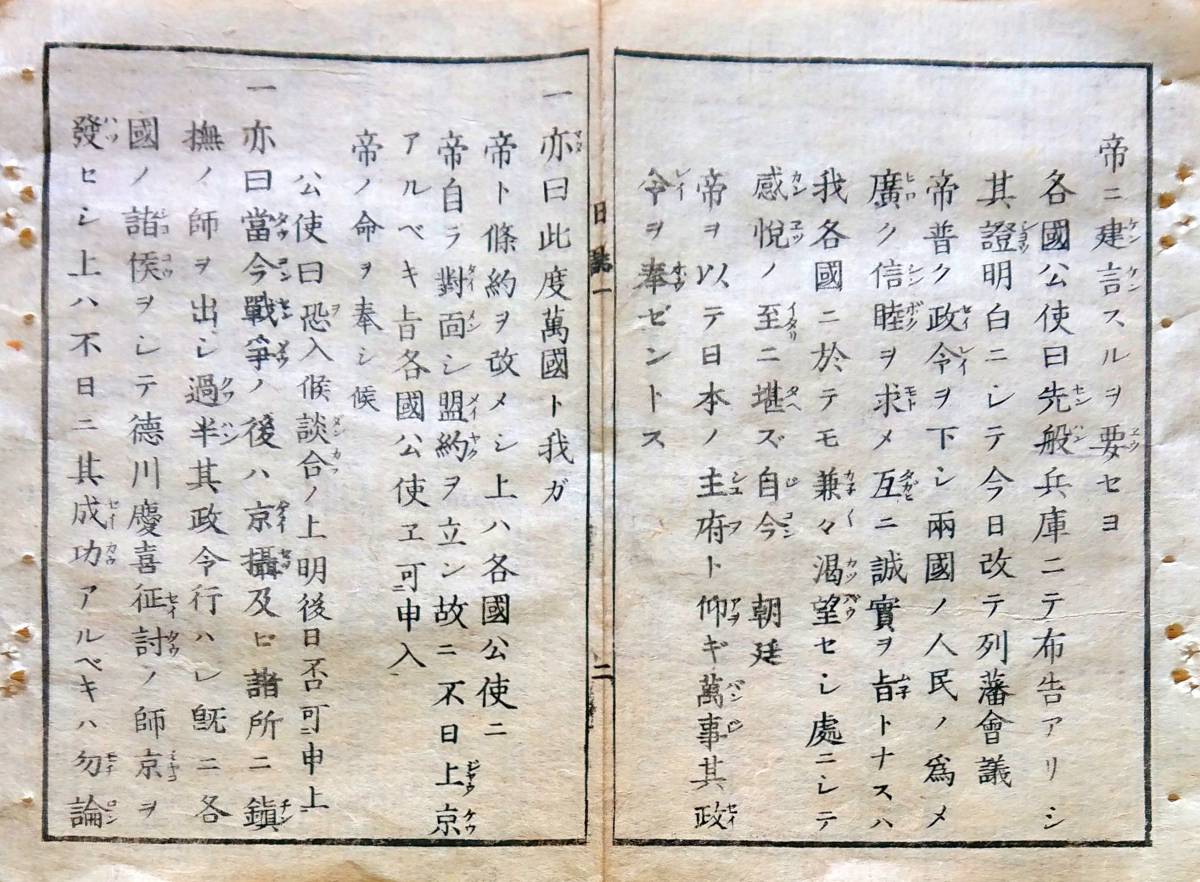 帝ニ建言スルヲ要セヨ
各國公使曰先般兵庫ニテ布告アリシ
其證明白ニシテ今日改テ列藩會議
帝普ク政令ヲ下シ兩國ノ人民ノ爲メ
廣ク信睦ヲ求メ互ニ誠實ヲ旨トナスハ
我各國ニ於テモ兼々渇望セシ處ニシテ
感悅ノ至ニ堪ズ自今 朝廷
帝ヲ以テ日本ノ主府ト仰ギ萬事其政
令ヲ奉ゼントス
日誌一
二
一亦曰此度萬國ト我ガ
帝ト條約ヲ改メシ上ハ各國公使ニ
帝自ラ對面シ盟約ヲ立ン故ニ不日上京
アルベキ旨各國公使エ可申入
帝ノ命ヲ奉シ候
公使曰恐入候談合ノ上明後日否可申上
一亦曰當今戰爭ノ後ハ京攝及ヒ諸所ニ鎮
撫ノ師ヲ出シ過半其政令行ハレ既ニ各
國ノ諸侯ヲシテ德川慶喜征討ノ師京ヲ
發セシ上ハ不日ニ其成功アルベキハ勿論